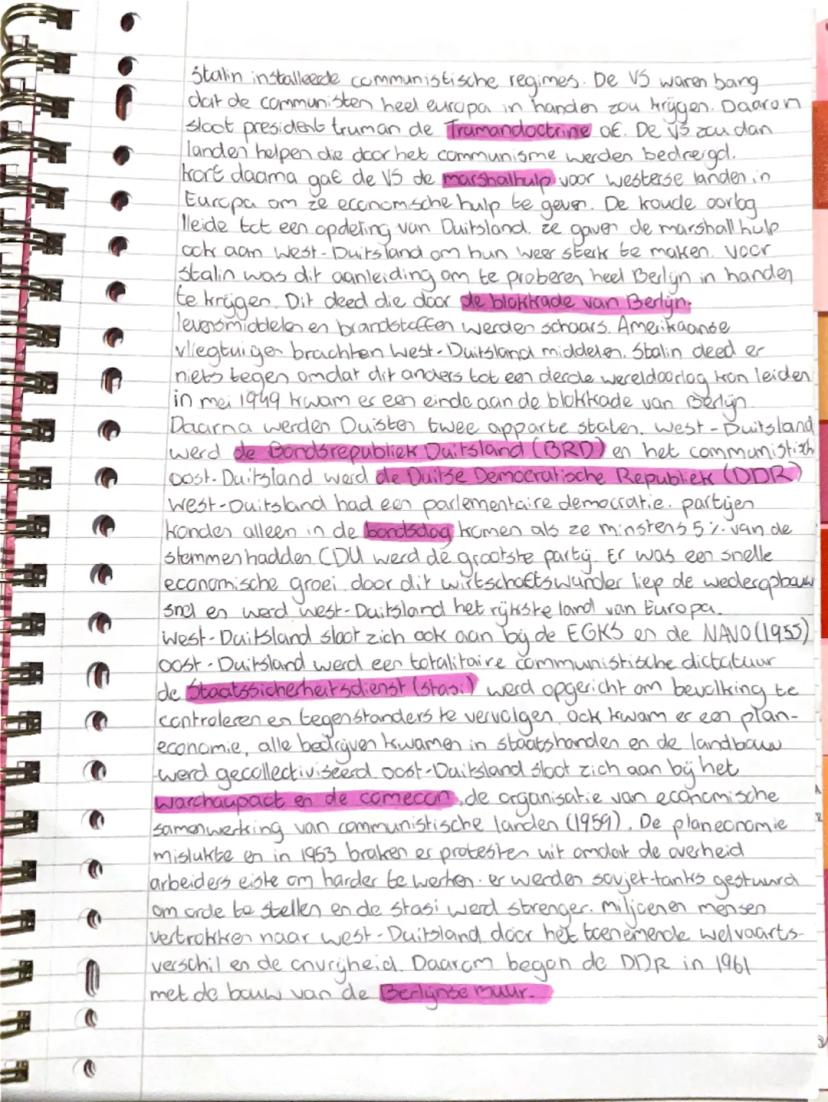 Stalin installeede communistische regimes. De VS waren bang
dat de communisten heel europa in handen zou krijgen. Daarom
sloot president truman de Trumandoctrine af. De VS zou dan
landen helpen die door het communisme werden bedreigd.
kort daarna gaf de VS de marshalhulp voor westerse landen in
Europa om ze economische hulp te geven. De koude oorlog
lleide tot een opdeling van Duitsland. ze gaven de marshall hulp
ook aan West-Duitsland om hun weer sterk te maken. Voor
stalin was dit aanleiding om te proberen heel Berlijn in handen
te krijgen. Dit deed die door de blokkade van Berlijn.
levensmiddelen en brandstoffen werden schaars. Amerikaanse
vliegtuigen brachten West-Duitsland middelen. Stalin deed er
niets tegen omdat dit anders tot een derde wereldoorlog kon leiden
in mei 1949 kwam er een einde aan de blokkade van Berlijn.
Daarna werden Duisten twee apparte staten. West-Duitsland
werd de Bondsrepubliek Duitsland (BRD) en het communistish
oost-Duitsland werd de Duitse Democratische Republiek (DDR)
West-Duitsland had een parlementaire democratie. partijen
konden alleen in de bondsdag komen als ze minstens 5% van de
stemmen hadden CDU werd de grootste partij. Er was een snelle
economische groei door dit wirtschaftswunder liep de wederopbouw
snel en werd West-Duitsland het rijkste land van Europa.
West-Duitsland sloot zich ook aan bij de EGKS en de NAVO (1955)
oost-Duitsland werd een totalitaire communistische dictatuur
de Staatssicherheitsdienst (stasi) werd opgericht om bevolking te
controleren en tegenstanders te vervolgen. ook kwam er een plan-
economie, alle bedrijven kwamen in staatshanden en de landbouw
werd gecollectiviseerd. oost-Duitsland sloot zich aan bij het
warchaupact en de comecon, de organisatie van economische
samenwerking van communistische landen (1959). De planeconomie
mislukte en in 1953 braken er protesten uit omdat de overheid
arbeiders eiste om harder te werken. er werden sovjet-tanks gestuurd
om orde te stellen en de stasi werd strenger. miljoenen mensen
vertrokken naar west-Duitsland door het toenemende welvaarts-
verschil en de onvrijheid. Daarom began de DDR in 1961
met de bouw van de Berlijnse muur.